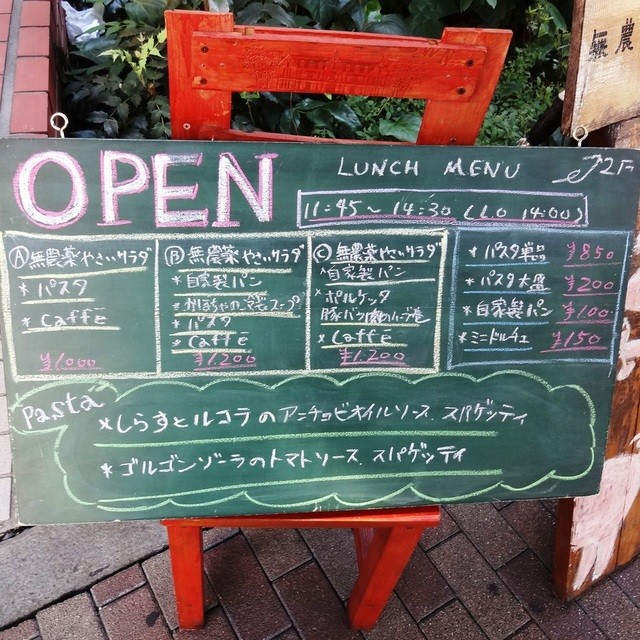 OPEN
LUNCH MENU
2F
11:45～14:30 (L.O 14:00)
Ⓐ無農薬やさいサラダ
*パスタ
*caffē
¥1.000
Ⓑ無農薬やさいサラダ
*自家製パン
かぼちゃの スープ
*パスタ
*caffē
¥1.200
Ⓒ無農薬やさいサラダ
*自家製パン
*ポルケッタ
豚バラ肉のハーブ
*caffē
¥1.200
*パスタ単品 ¥850
*パスタ大盛 ¥200
*自家製パン ¥100
*ミニドルチェ ¥150
Pasta
*しらすとルコラのアンチョビオイルソース.スパゲッティ
*ゴルゴンゾーラのトマトソース.スパゲッティ
無農